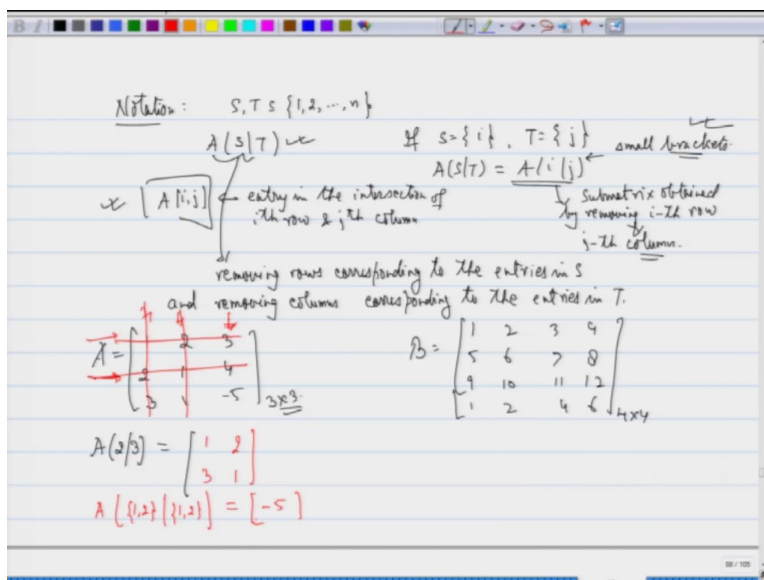 Notation : S, T ⊆ {1, 2, ..., n}
A(S|T)
If S={i}, T={j}
A(S|T) = A(i|j) ← small brackets.
A[i,j] ← entry in the intersection of ith row & jth column
Submatrix obtained by removing i-th row
j-th column.
removing rows corresponding to the entries in S
and removing columns corresponding to the entries in T.
A = [ 1 2 3
2 1 4
3 1 -5 ] 3×3
B = [ 1 2 3 4
5 6 7 8
9 10 11 12
1 2 4 6 ] 4×4
A(2|3) = [ 1 2
3 1 ]
A({1,2}|{1,2}) = [-5]
88 / 105